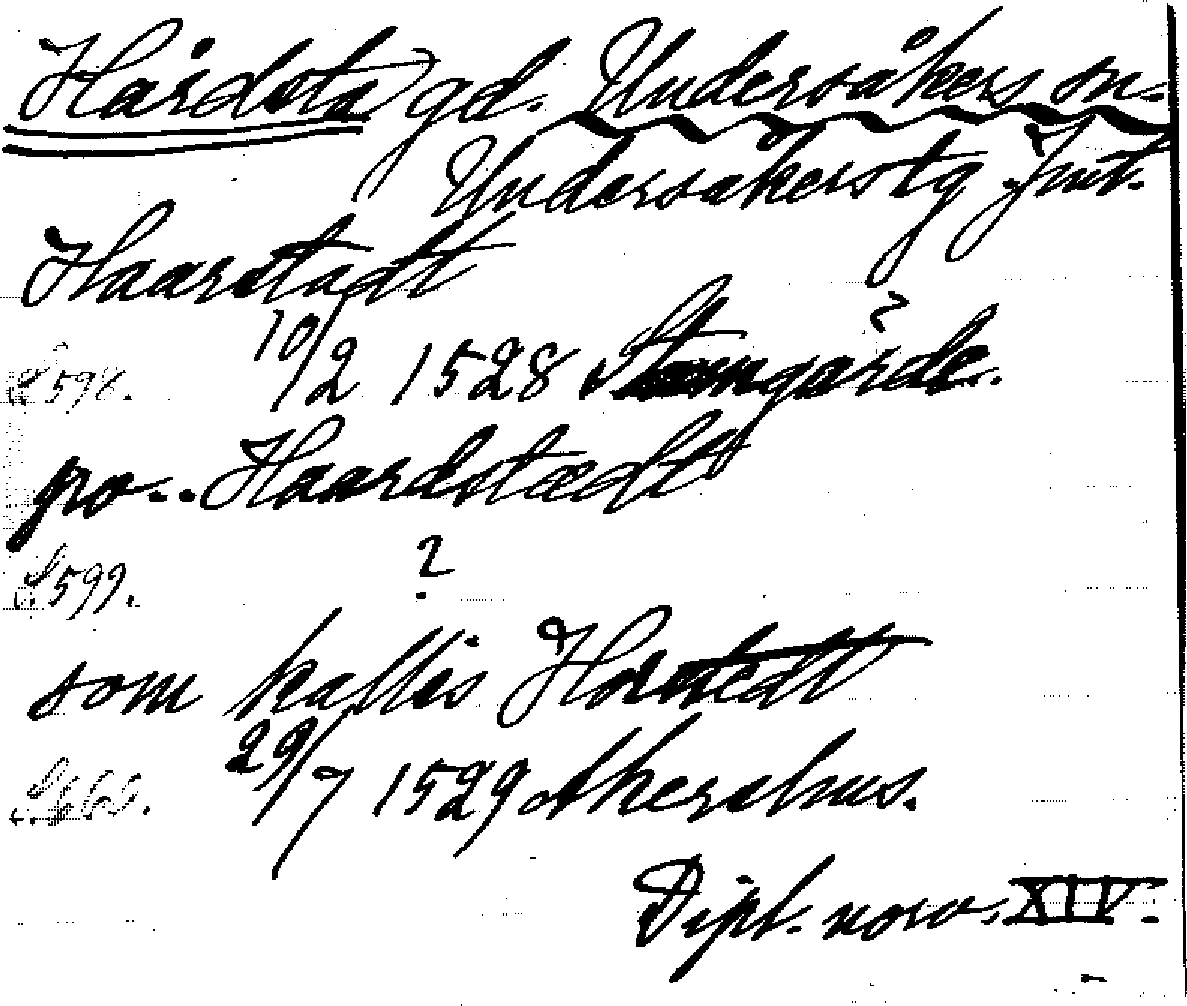 Hårdsta gd. Undersåkers sn.
Undersåkerstg Jmt.
Haarstadt
10/2 1528 ?
S. 598.
pro.. Haardstædt
S. 599. ?
som kallis Horstedt
29/7 1529 Akershus.
Dipl. norv. XIV.